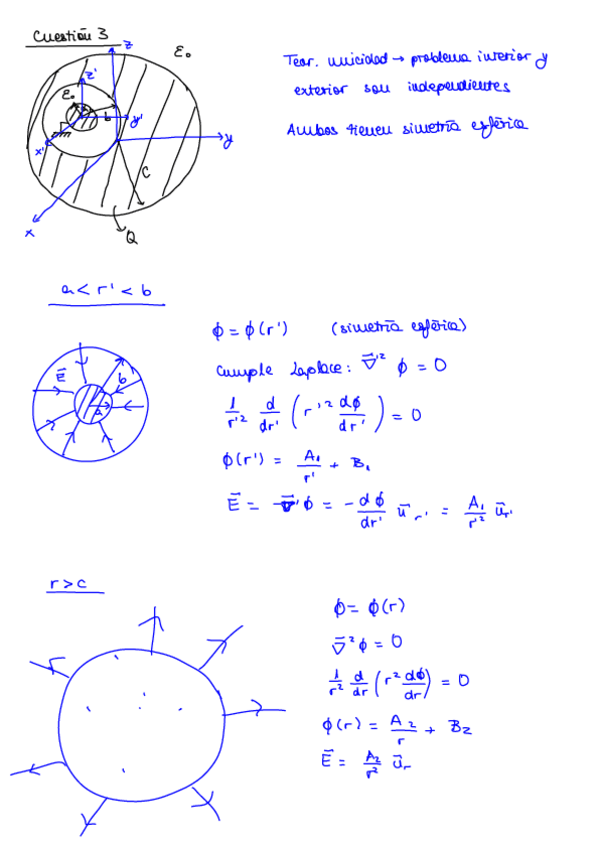 Cuestión 3
z
ε₀
z'
ε₀
a
b
y'
y
x'
c
x
Q
Teor. unicidad → problema interior y
exterior son independientes
Ambos tienen simetría esférica
a < r' < b
E⃗
b
a
ϕ = ϕ(r') (simetría esférica)
Cumple Laplace: ∇⃗'² ϕ = 0
1/r'² d/dr' (r'² dϕ/dr') = 0
ϕ(r') = A₁/r' + B₁
E⃗ = -∇⃗'ϕ = -dϕ/dr' u⃗r' = A₁/r'² u⃗r'
r > c
ϕ = ϕ(r)
∇⃗²ϕ = 0
1/r² d/dr (r² dϕ/dr) = 0
ϕ(r) = A₂/r + B₂
E⃗ = A₂/r² u⃗r